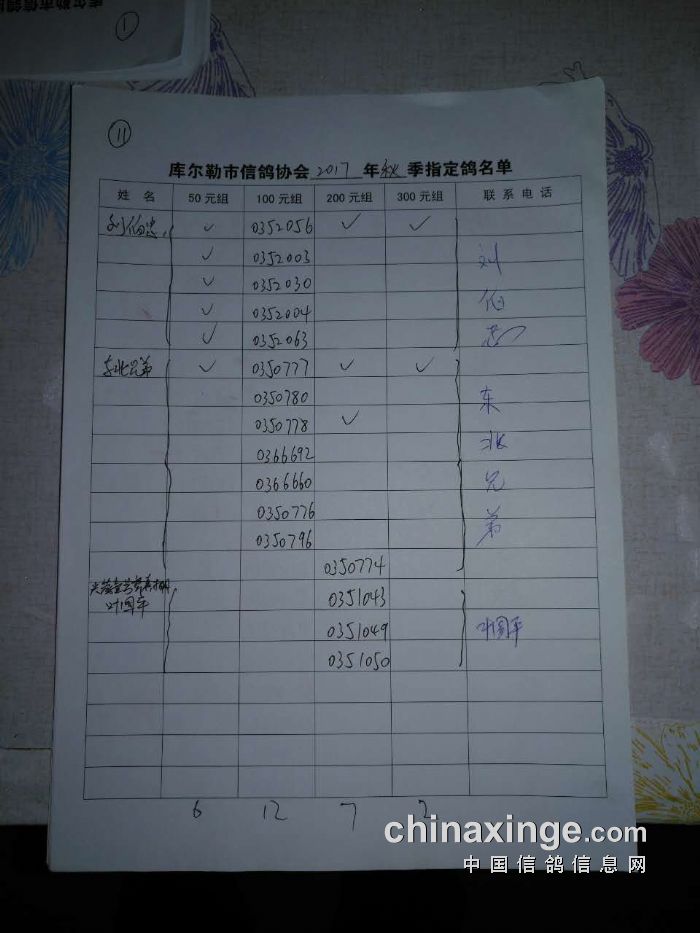 库尔勒市信鸽
①
⑪
库尔勒市信鸽协会 2017 年 秋 季指定鸽名单
姓 名 50元组 100元组 200元组 300元组 联系电话
刘伯忠 ✓ 0352056 ✓ ✓
✓ 0352003 刘
✓ 0352030 伯
✓ 0352004 忠
✓ 0352063
东北兄弟 ✓ 0350777 ✓ ✓
0350780 东
0350778 ✓ 北
0366692
0366660 兄
0350776 弟
0350796
0350774
叶国平 0351043
0351049 叶国平
0351050
6 12 7 2
chinaxinge.com
中国信鸽信息网